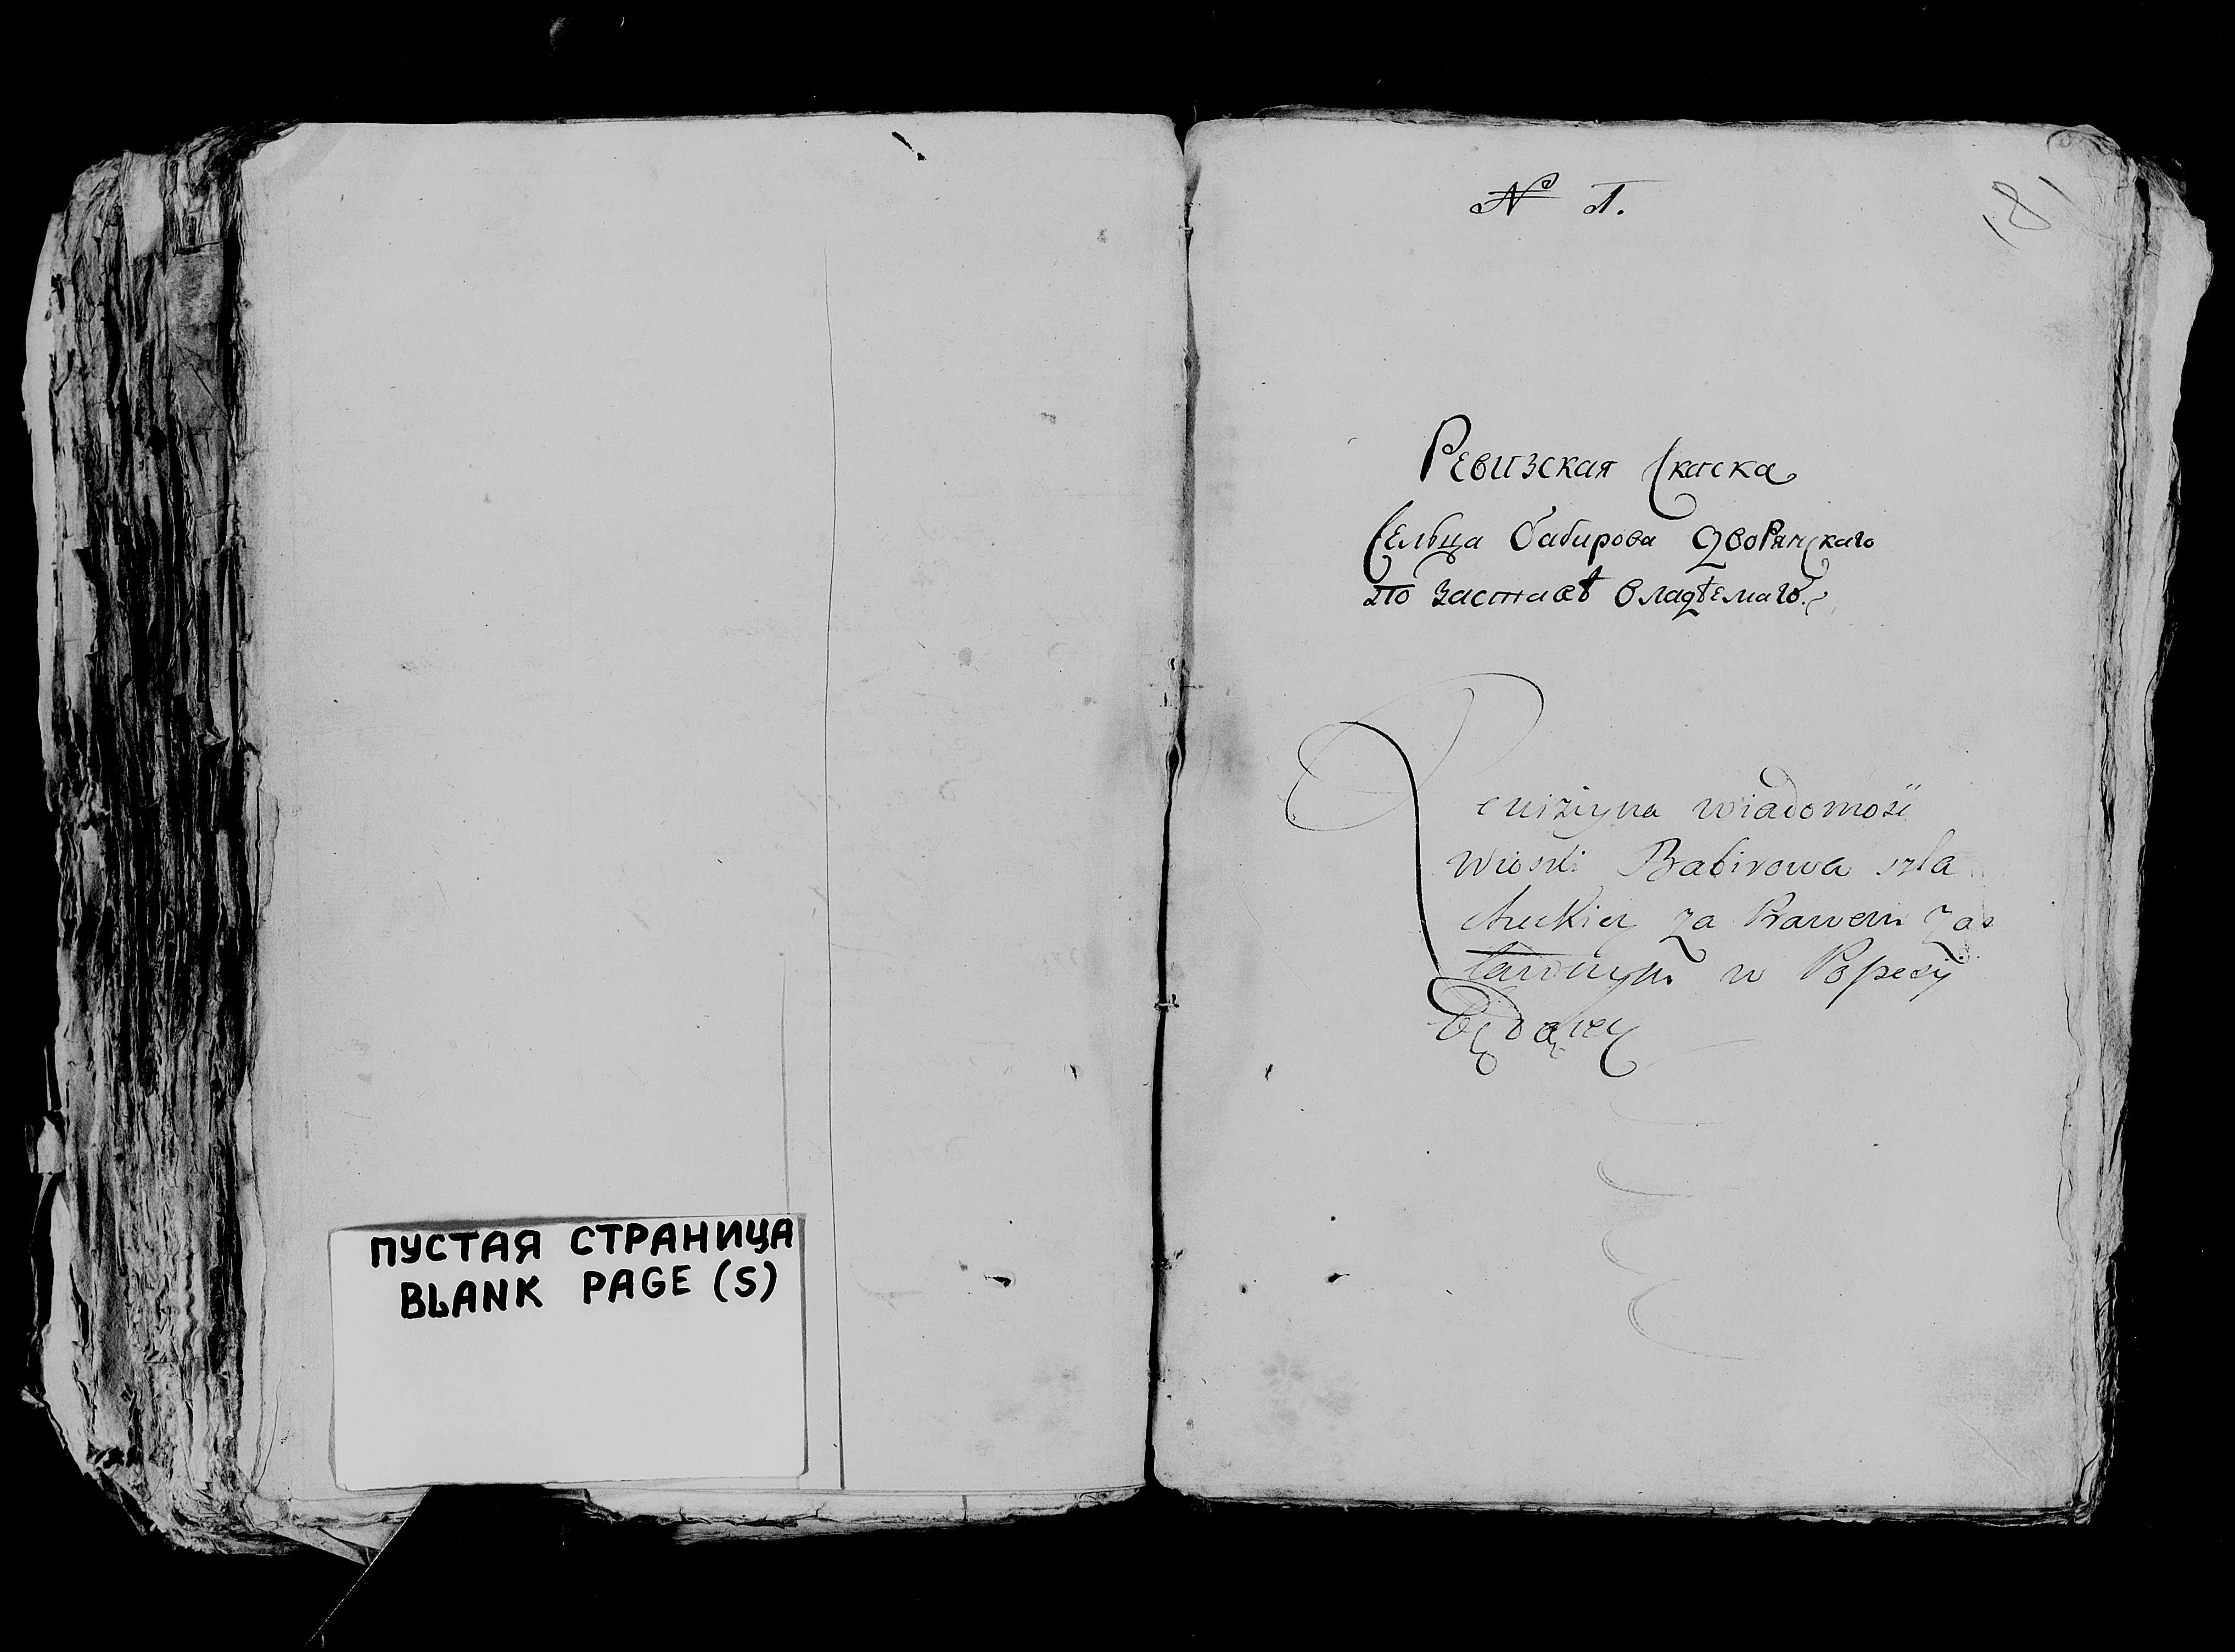 ПУСТАЯ СТРАНИЦА
BLANK PAGE (S)
N 1.
Ревизская скаска
Сельца Бабирова Дворянскаго
по заставѣ владѣемаго.
Rewiziyna wiadomość
Wioski Babirowa szla
checkiey za Prawem zas
tawnym w Posesyi
będącey